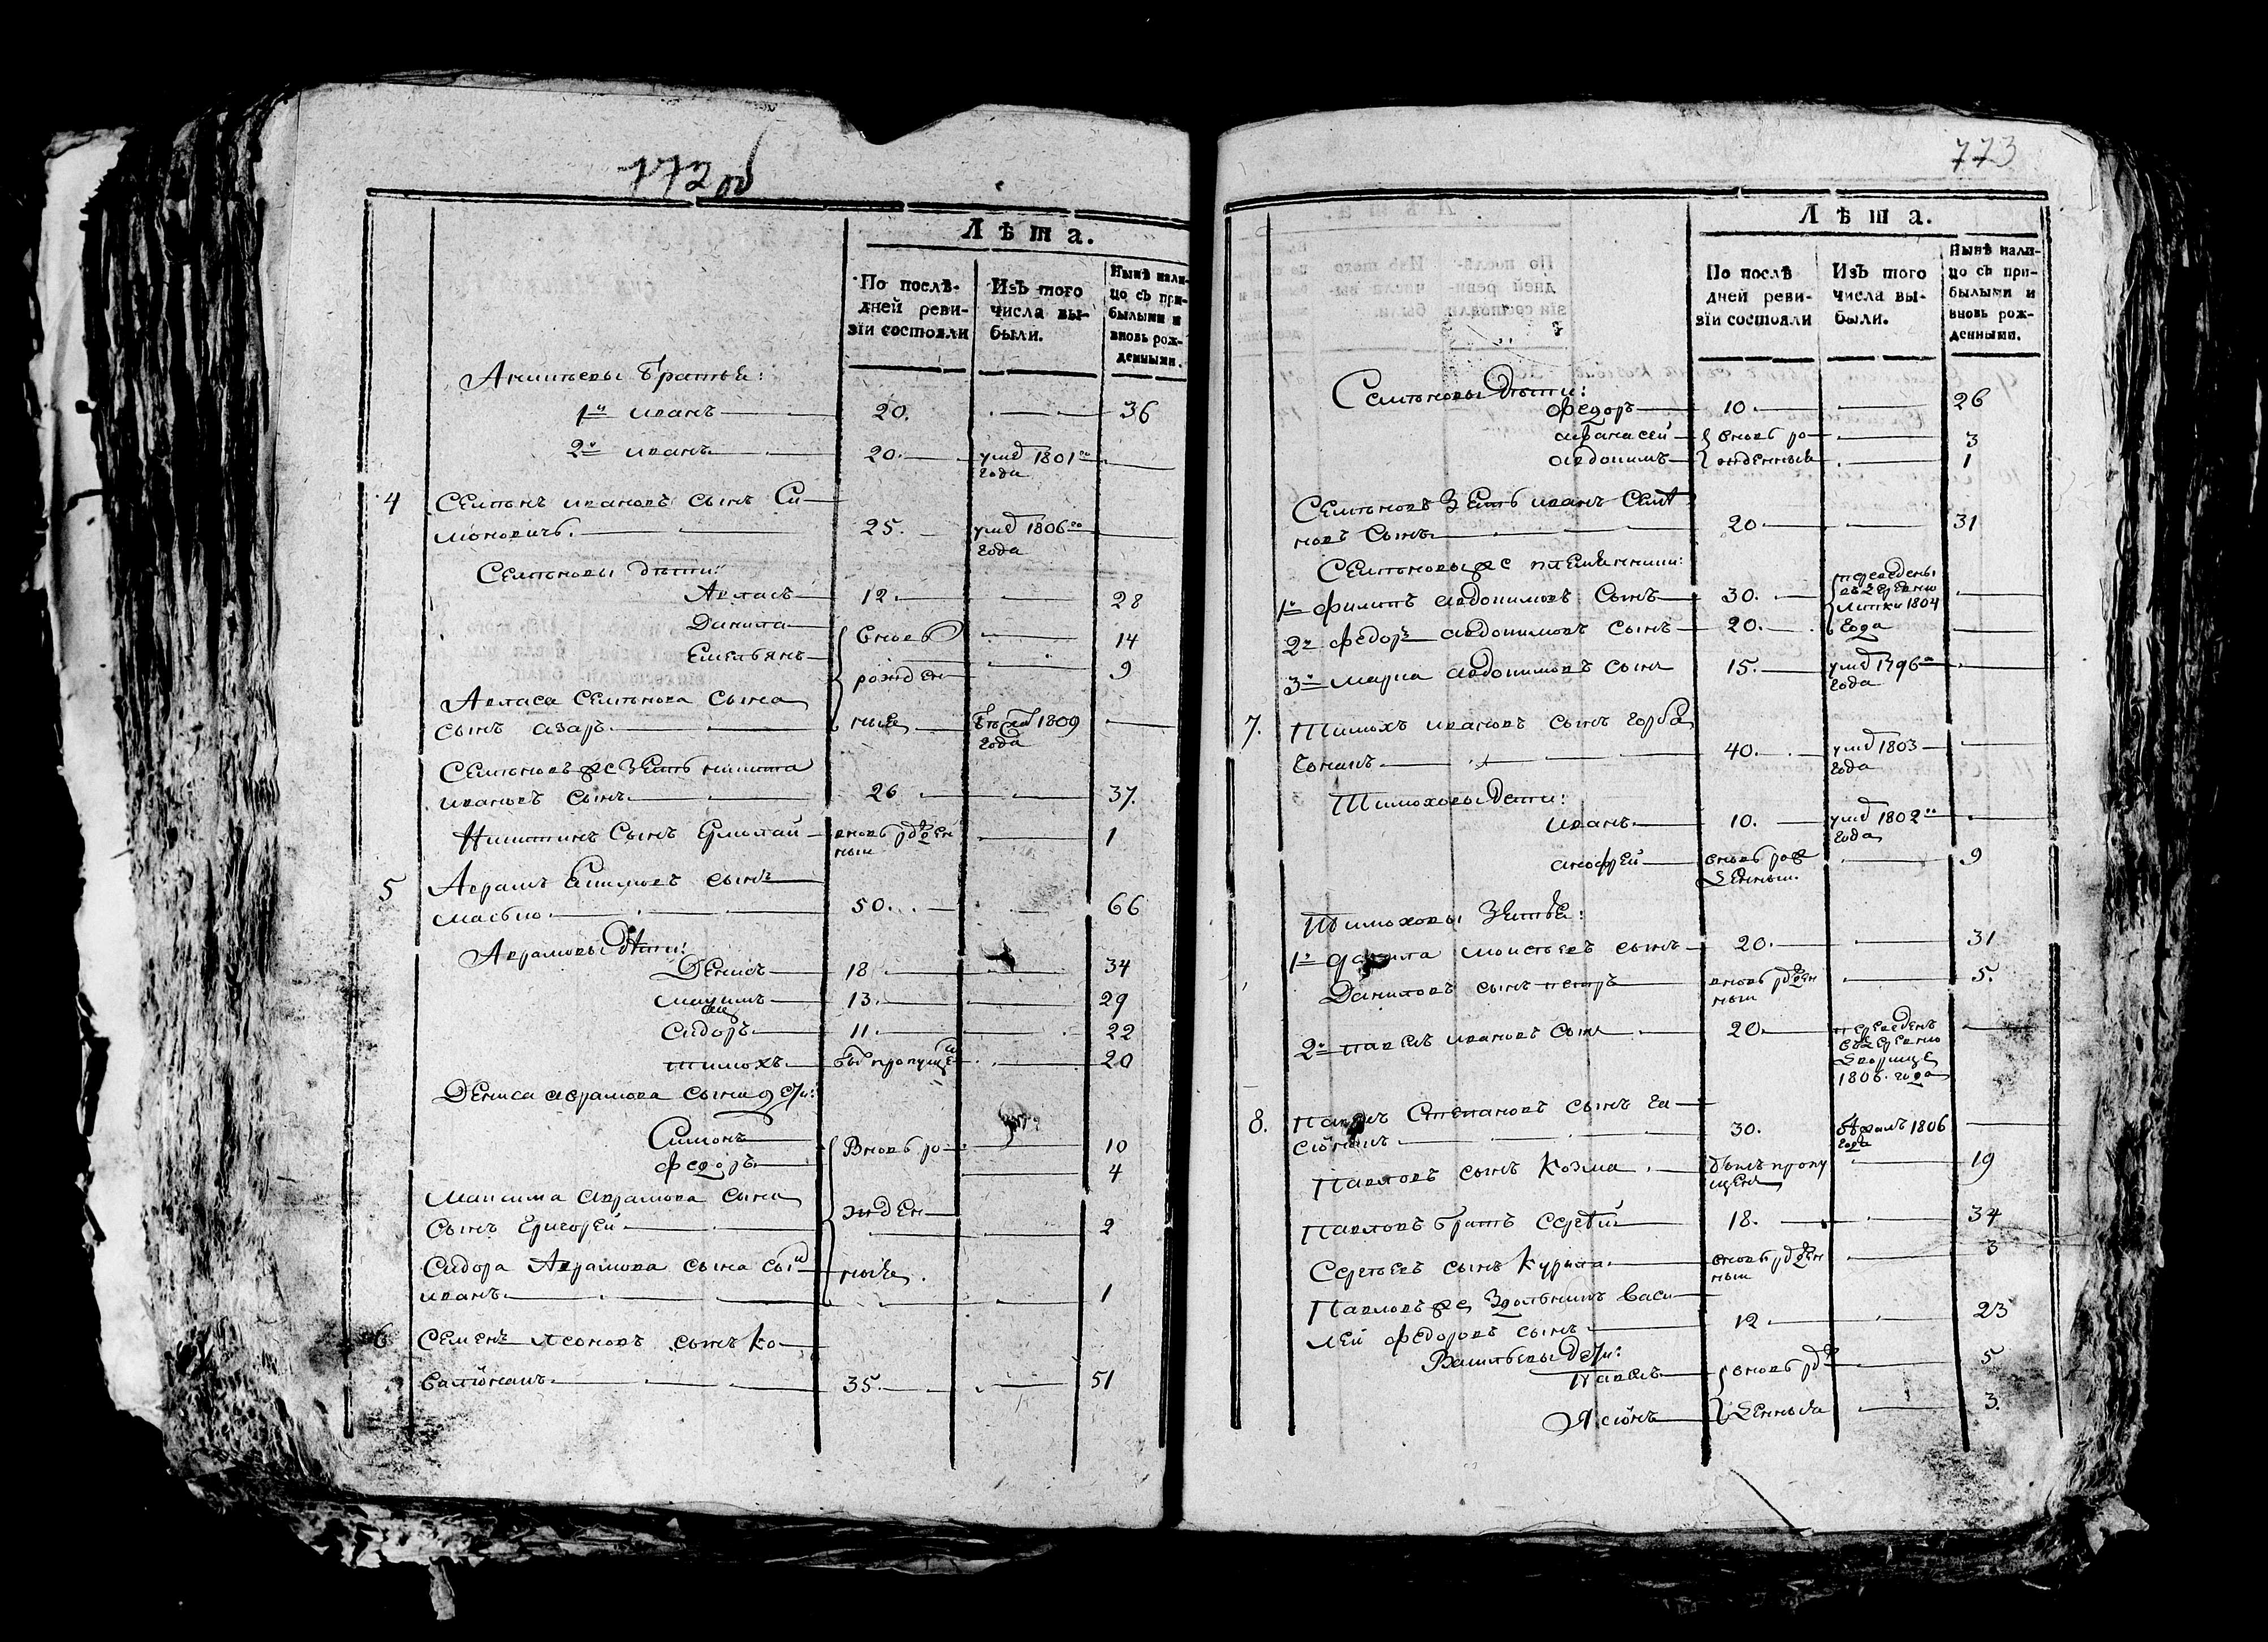 772 об
Лѣта.
По послѣ-
дней реви-
зїи состояли
Изъ того
числа вы-
были.
Нынѣ нали-
цо съ при-
былыми и
вновь рож-
денными.
братья:
1й иванъ 20. 36
2й иванъ 20. умер 1801го
года
4 Семенъ ивановъ сынъ Си-
моновичъ. 25. умер 1806го
года
Семеновы дети:
Авласъ 12. 28
Данила вновь 14
Емельянъ рожден 9
Авласа Семенова сына
сынъ азаръ ныя бежал 1809
года
Семеновъ же зеть никита
ивановъ сынъ 26 37.
Никитинъ сынъ Ермолай вновь рожден 1
ный
5 Аврамъ сынъ
50. 66
Аврамовы дети:
Денисъ 18 34
Максимъ 13. 29
Сидоръ 11. 22
тимохъ был пропущен 20
Дениса аврамова сына дети:
Симонъ Вновь ро 10
федоръ 4
Максима аврамова сына
сынъ григорей жден 2
Сидора Аврамова сына сын ныя.
иванъ 1
6 Семенъ леоновъ сынъ ко-
валiонакъ 35. 51
773
Лѣта.
По послѣ
дней реви-
зїи состояли
Изъ того
числа вы-
были.
Нынѣ нали-
цо съ при-
былыми и
вновь рож-
денными.
Семеновы дети:
федоръ 10. 26
афанасей вновь ро 3
авдокимъ жденныя 1
Семеновъ зеть иванъ Семе
новъ сынъ 20 31
Семеновы же племянники:
1й филипъ авдокимовъ сынъ 30. переведены
въ деревню
липки 1804
года
2й федоръ авдокимовъ сынъ 20.
3й марка авдокимовъ сынъ 15. умер 1796го
года
7. Тимохъ ивановъ сынъ горба
чонакъ 40. умер 1803
года
Тимоховы дети:
иванъ 10. умер 1802го
года
анофрей вновь рож 9
денный.
Тимоховы зетья:
1й данила моисеевъ сынъ 20. 31
Даниловъ сынъ петръ вновь рожден 5.
ный
2й павелъ ивановъ сынъ 20. переведенъ
въ деревню
дворище
1806. года
8. Павелъ Степановъ сынъ га
сiонакъ 30. бежалъ 1806
года
Павловъ сынъ Козма былъ пропу 19
щен
Павловъ братъ Сергей 18. 34
Сергеевъ сынъ Курила вновь рожден 3
ный
Павловъ же здольникъ Васи
лей федоровъ сынъ 12. 23
Васильевы дети:
Павелъ вновь рож 5
Ясонъ денныя 3.